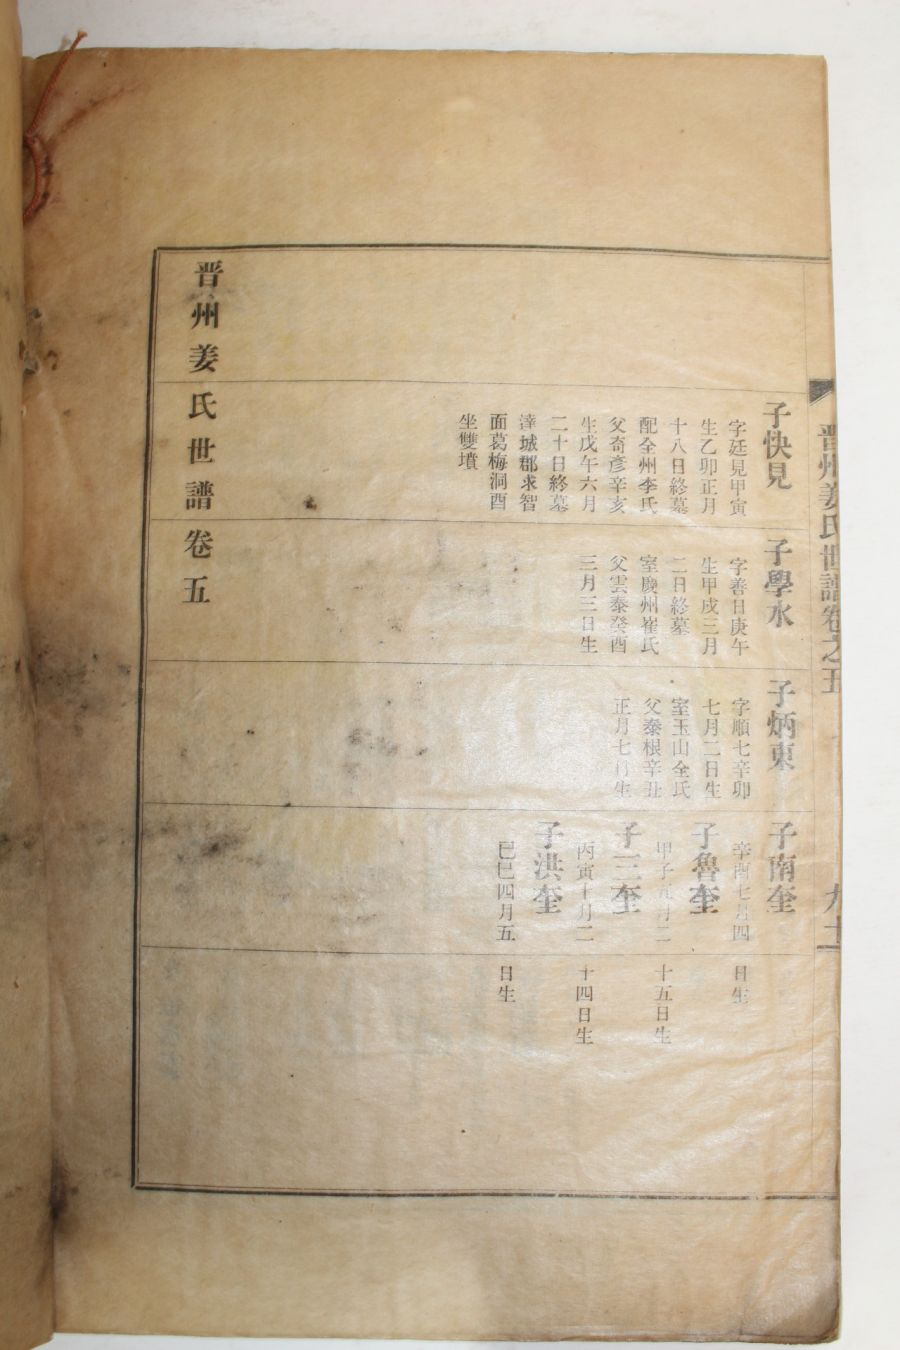 晋州姜氏世譜卷之五
子快見
字廷見甲寅
生乙卯正月
十八日終墓
配全州李氏
父奇彥辛亥
生戊午六月
二十日終墓
達城郡求智
面葛梅洞酉
坐雙墳
子學水
字善日庚午
生甲戌三月
二日終墓
室慶州崔氏
父雲泰癸酉
三月三日生
子炳東
字順七辛卯
七月二日生
室玉山全氏
父泰根辛丑
正月七日生
子南奎
辛酉七月四日生
子魯奎
甲子九月二十五日生
子三奎
丙寅十月二十四日生
子洪奎
己巳四月五日生
晋州姜氏世譜卷五